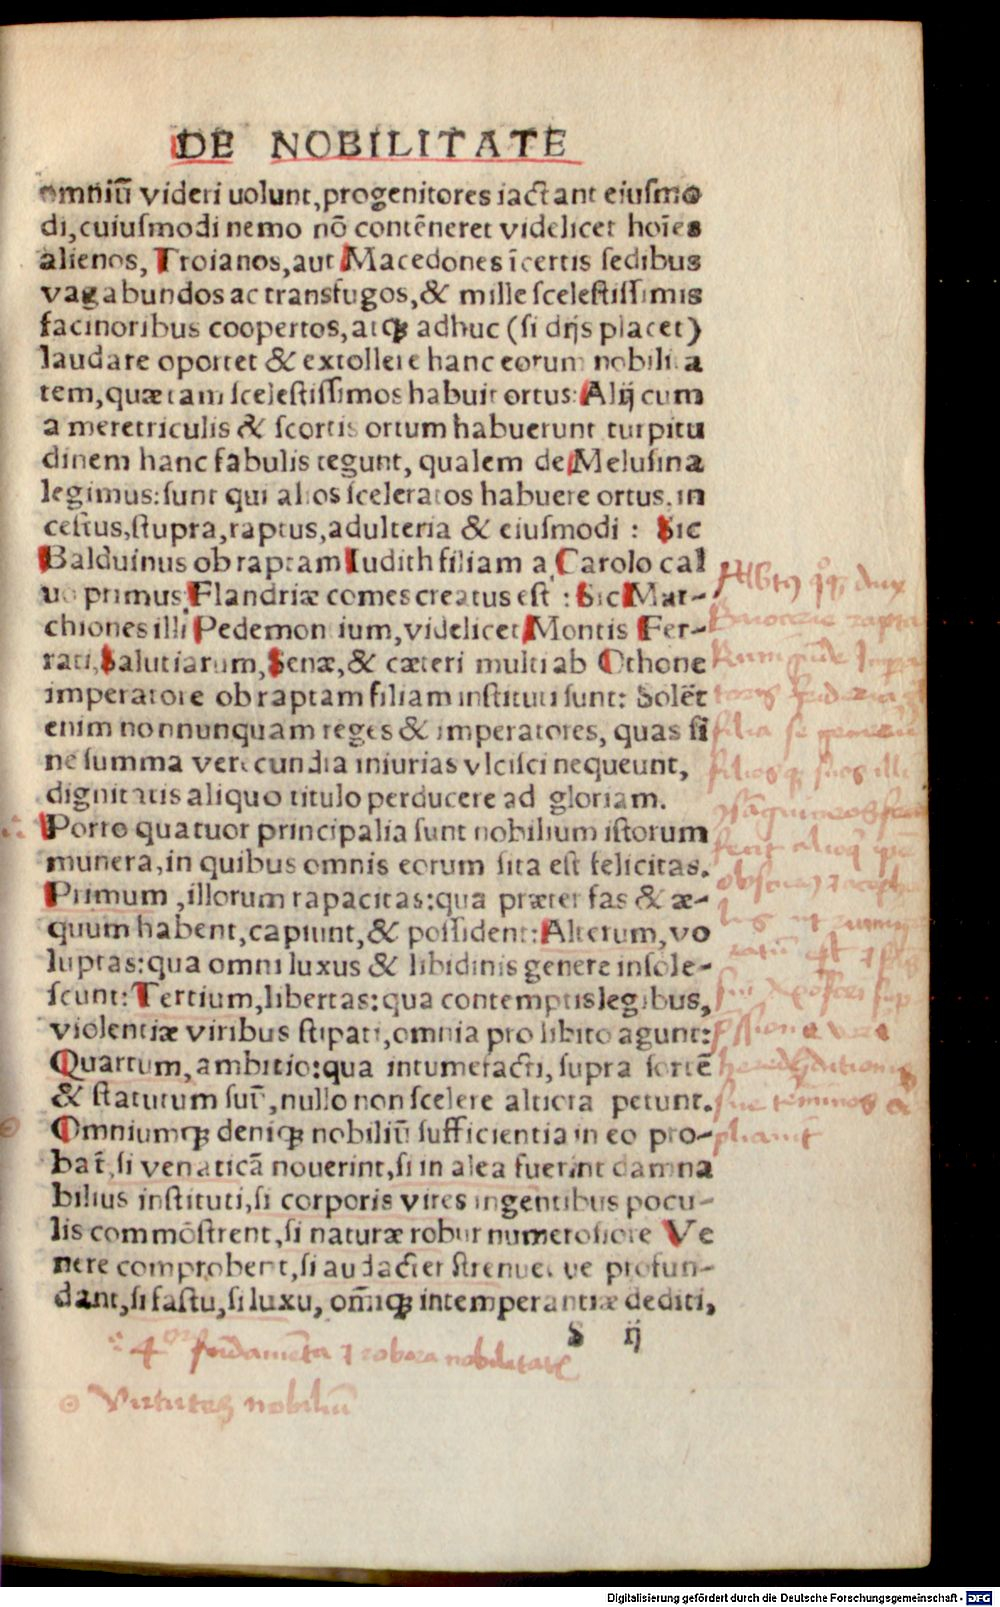 DE NOBILITATE
omniū videri uolunt, progenitores iactant eiuſmo
di, cuiuſmodi nemo nō contēneret videlicet hoīes
alienos, Troianos, aut Macedones īcertis ſedibus
vagabundos ac transfugos, & mille ſceleſtiſſimis
facinoribus coopertos, atqꝫ adhuc (ſi dijs placet)
laudare oportet & extollere hanc eorum nobilita
tem, quæ tam ſceleſtiſſimos habuit ortus: Alij cum
a meretriculis & ſcortis ortum habuerunt turpitu
dinem hanc fabulis tegunt, qualem de Meluſina
legimus: ſunt qui alios ſceleratos habuere ortus. in
ceſtus, ſtupra, raptus, adulteria & eiuſmodi : Sic
Balduinus ob raptam Iudith filiam a Carolo cal
uo primus Flandriæ comes creatus eſt : Sic Mar-
chiones illi Pedemontium, videlicet Montis Fer-
rati, Salutiarum, Senæ, & cæteri multi ab Othone
imperatore ob raptam filiam inſtituti ſunt: Solēt
enim nonnunquam reges & imperatores, quas ſi
ne ſumma verecundia iniurias vlciſci nequeunt,
dignitatis aliquo titulo perducere ad gloriam.
Porro quatuor principalia ſunt nobilium iſtorum
munera, in quibus omnis eorum ſita eſt felicitas.
Primum , illorum rapacitas: qua præter fas & æ-
quum habent, capiunt, & poſſident: Alterum, vo
luptas: qua omni luxus & libidinis genere inſole-
ſcunt: Tertium, libertas: qua contemptis legibus,
violentiæ viribus ſtipati, omnia pro libito agunt:
Quartum, ambitio: qua intumefacti, ſupra ſortē
& ſtatutum ſuū, nullo non ſcelere altiora petunt.
Omniumqꝫ deniqꝫ nobiliū ſufficientia in eo pro-
bat̄, ſi venaticā nouerint, ſi in alea fuerint damna
bilius inſtituti, ſi corporis vires ingentibus pocu-
lis commōſtrent, ſi naturæ robur numeroſiore Ve
nere comprobent, ſi audacter ſtrenue ve profun-
dant, ſi faſtu, ſi luxu, om̄iqꝫ intemperantiæ dediti,
S ij
Albtꝰ qͦqꝫ dux
Bavarie rapta
filia
filiosqꝫ suos illi
4or fundamēta ⁊ robora nobilitatis
Virtutes nobiliū
Digitalisierung gefördert durch die Deutsche Forschungsgemeinschaft - DFG